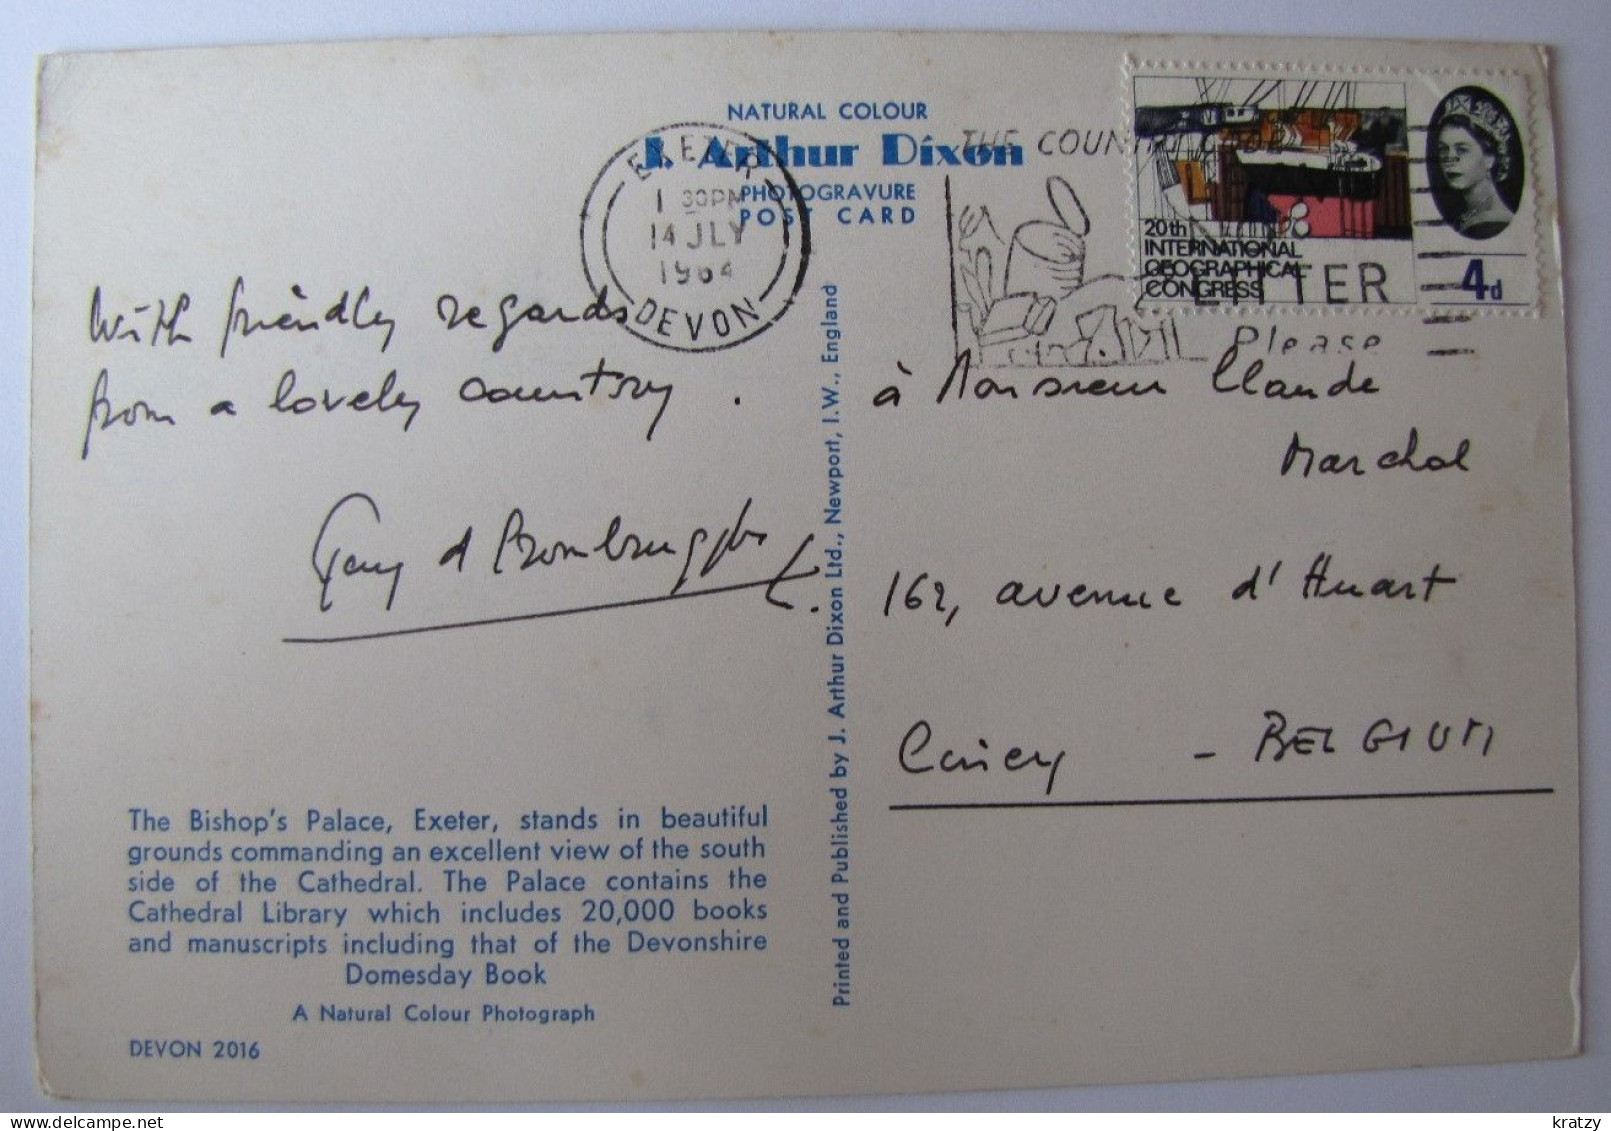 NATURAL COLOUR
J. Arthur Dixon
PHOTOGRAVURE
POST CARD
EXETER
1 30PM
14 JLY
1964
DEVON
THE COUNTRY CODE
NO
LITTER
Please
20th
INTERNATIONAL
GEOGRAPHICAL
CONGRESS
4d
With friendly regards
from a lovely country.
Printed and Published by J. Arthur Dixon Ltd., Newport, I.W., England
à Monsieur Claude
Marchal
162, avenue d'Huart
Ciney - BELGIUM
The Bishop's Palace, Exeter, stands in beautiful
grounds commanding an excellent view of the south
side of the Cathedral. The Palace contains the
Cathedral Library which includes 20,000 books
and manuscripts including that of the Devonshire
Domesday Book
A Natural Colour Photograph
DEVON 2016
kratzy